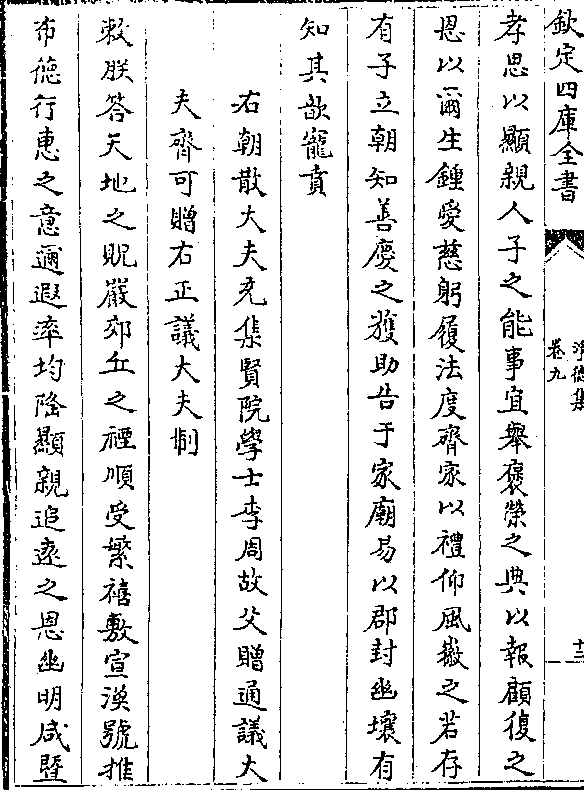 欽定四庫全書
淨德集
卷九
十三
孝思以顯親人子之能事宜舉褒榮之典以報顧復之
恩以爾生鍾愛慈躬履法度齊家以禮仰風徽之若存
有子立朝知善慶之獲助告于家廟易以郡封幽壤有
知其歆寵賁
右朝散大夫充集賢院學士李周故父贈通議大
夫齊可贈右正議大夫制
敕朕答天地之貺嚴郊丘之禋順受繁禧敷宣渙號推
布德行惠之意邇遐率均隆顯親追遠之恩幽明咸暨